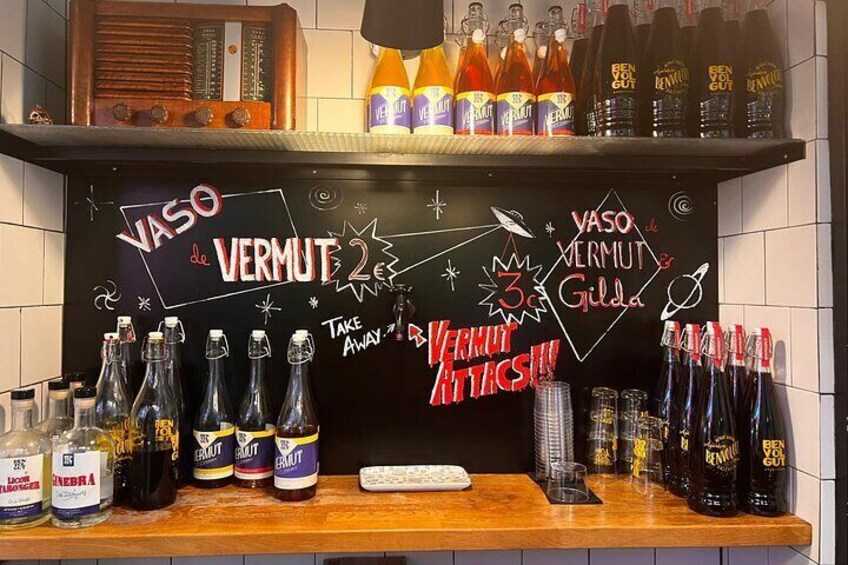 VERMUT
VERMUT
VERMUT
VERMUT
VERMUT
BEN
VOL
GUT
Benvolgut
BEN
VOL
GUT
Benvolgut
VASO
de
VERMUT
2€
3€
VASO de
VERMUT &
Gilda
TAKE
AWAY
VERMUT
ATTACS!!!
BEN
VOL
GUT
LICOR
TARONGER
GINEBRA
BEN
VOL
GUT
VERMUT
VERMUT
BEN
VOL
GUT
VERMUT
Benvolgut
BEN
VOL
GUT